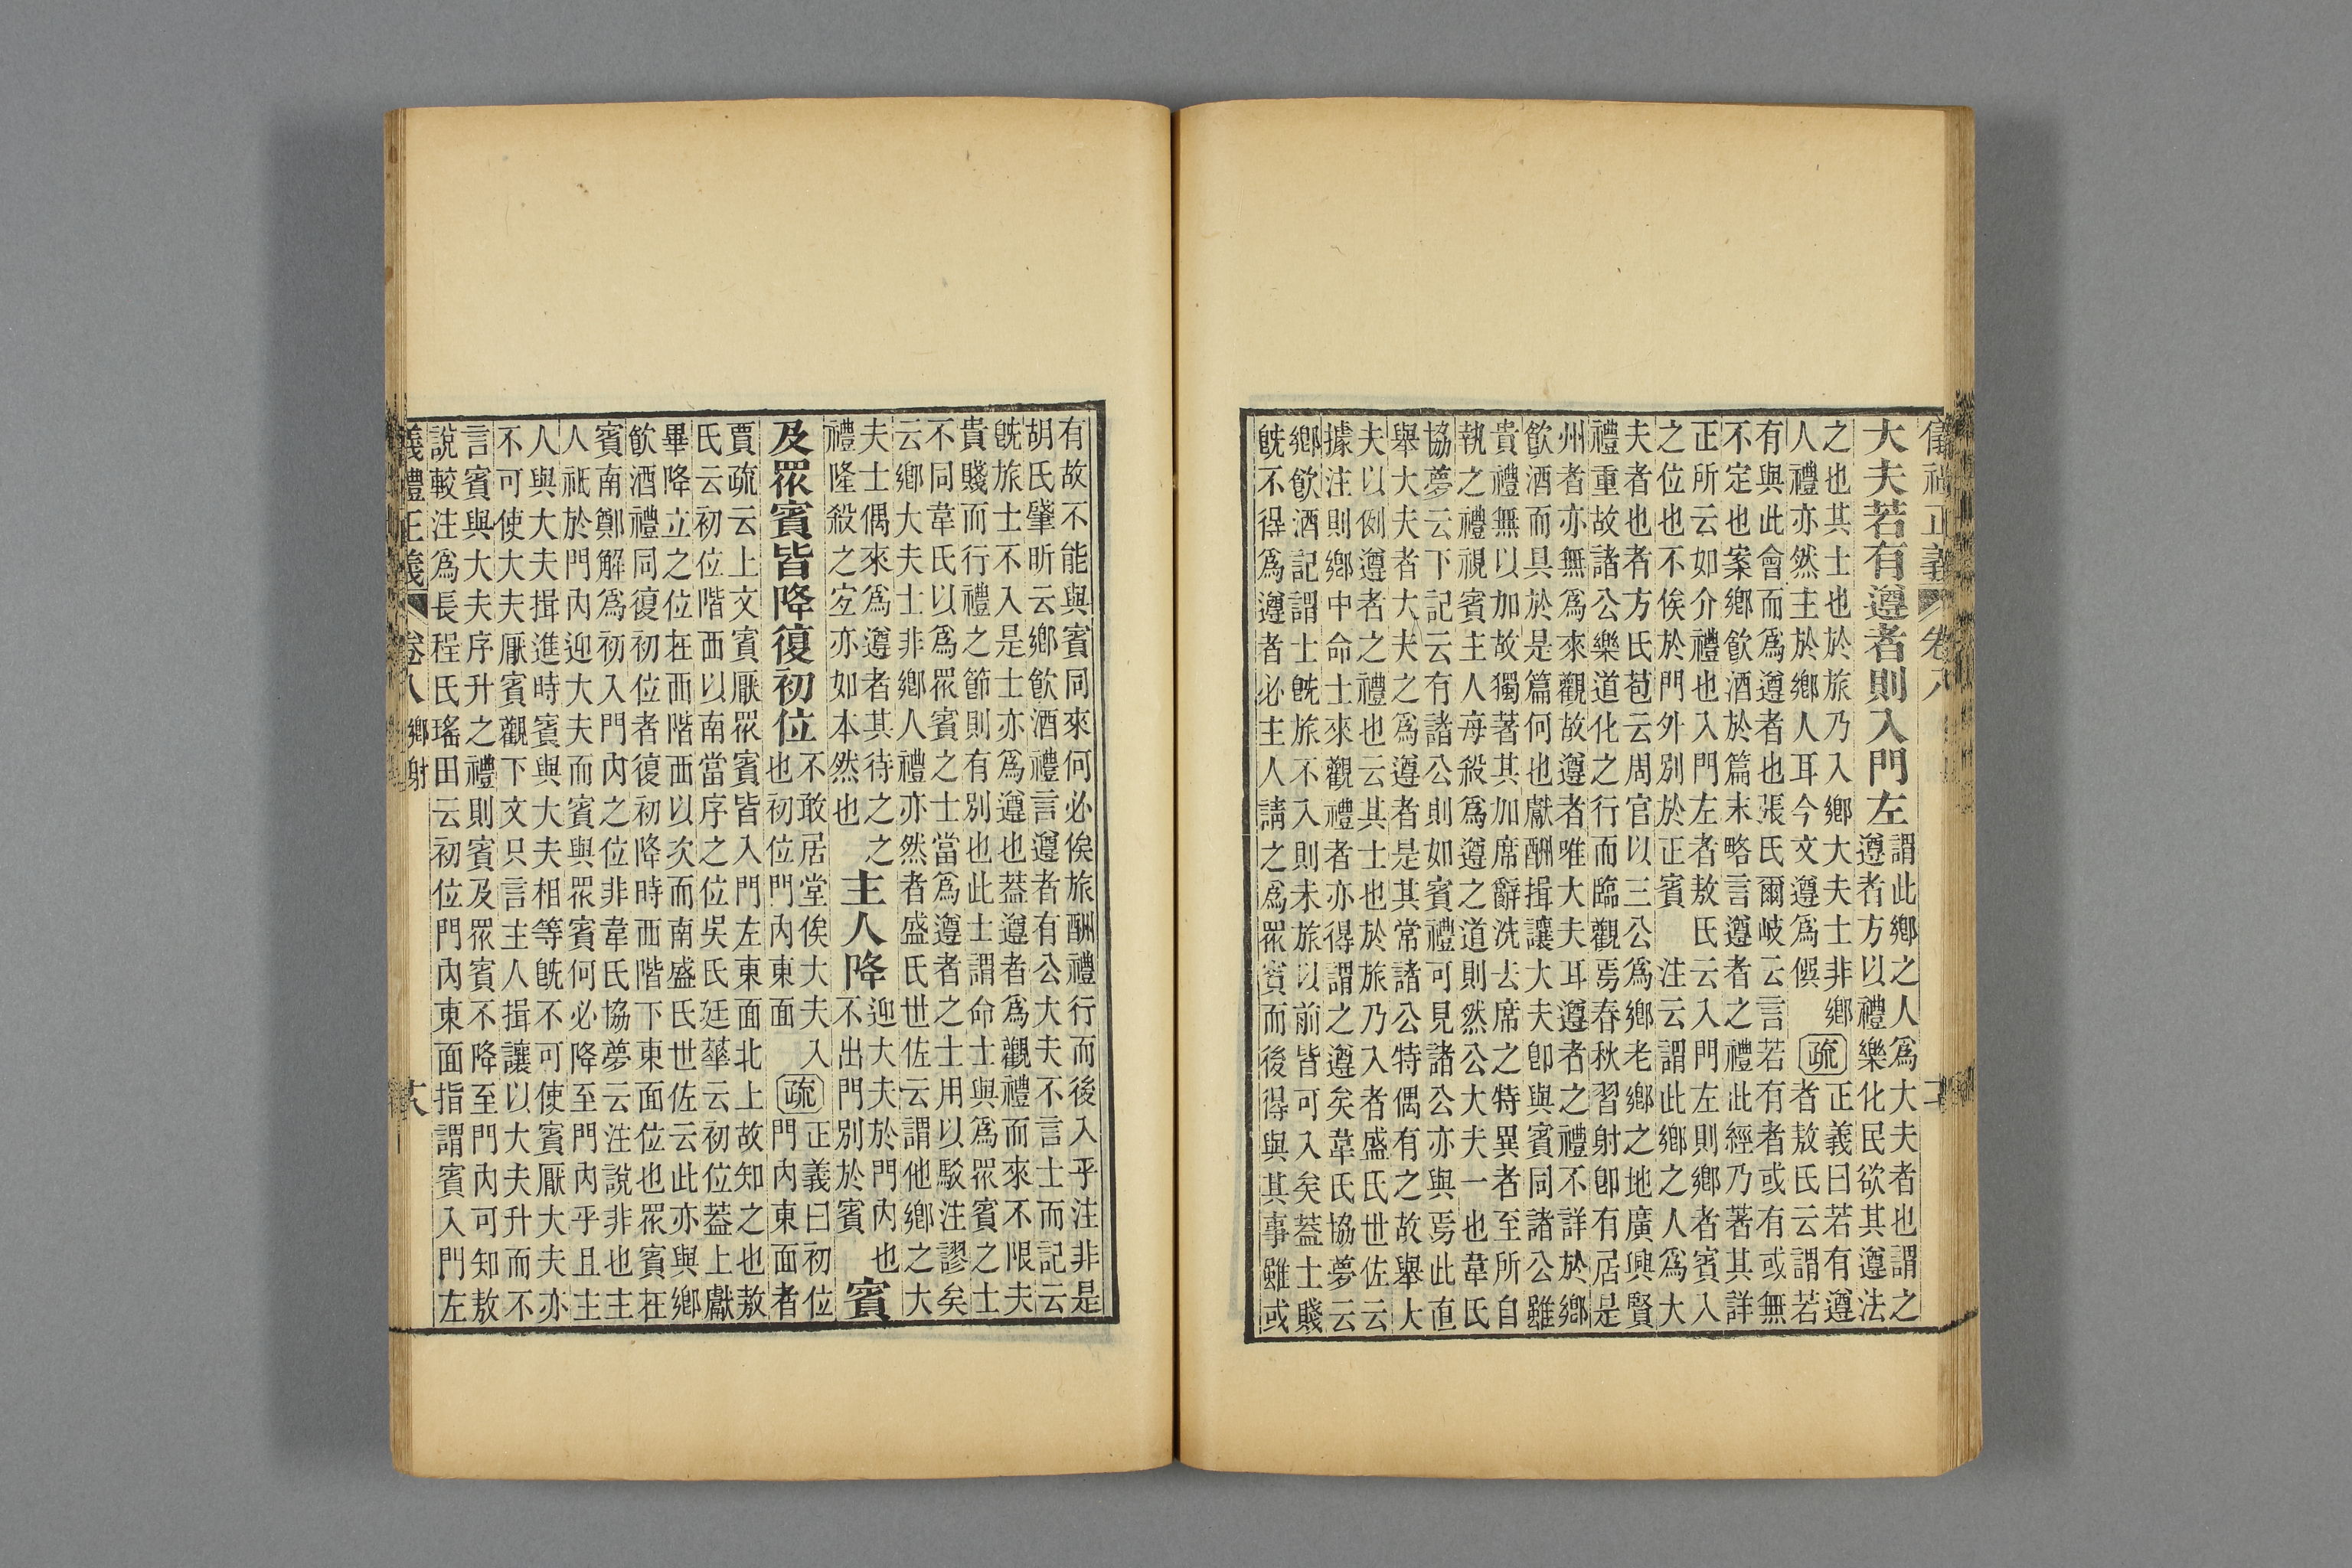 大夫若有遵者則入門左 謂此鄉之人爲大夫者也謂之
遵者方以禮樂化民欲其遵法
之也其士也於旅乃入鄉大夫士非鄉
人禮亦然主於鄉人耳今文遵爲僎 疏 正義曰若有遵
者敖氏云謂若
有與此會而爲遵者也張氏爾岐云言若有者或有或無
不定也案鄉飲酒於篇末略言遵者之禮此經乃著其詳
正所云如介禮也入門左者敖氏云入門左則鄉者賓入
之位也不俟於門外別於正賓 注云謂此鄉之人爲大
夫者也者方氏苞云周官以三公爲鄉老鄉之地廣興賢
禮重故諸公樂道化之行而臨觀焉春秋習射卽有居是
州者亦無爲來觀故遵者唯大夫耳遵者之禮不詳於鄉
飲酒而具於是篇何也獻酬揖讓大夫卽與賓同諸公雖
貴禮無以加故獨著其加席辭洗去席之特異者至所自
執之禮視賓主人每殺爲遵之道則然公大夫一也韋氏
協夢云下記云有諸公則如賓禮可見諸公亦與焉此直
舉大夫者大夫之爲遵者是其常諸公特偶有之故舉大
夫以例遵者之禮也云其士也於旅乃入者盛氏世佐云
據注則鄉中命士來觀禮者亦得謂之遵矣韋氏協夢云
鄉飲酒記謂士旣旅不入則未旅以前皆可入矣蓋士賤
旣不得爲遵者必主人請之爲眾賓而後得與其事雖或
有故不能與賓同來何必俟旅酬禮行而後入乎注非是
胡氏肇昕云鄉飲酒禮言遵者有公大夫不言士而記云
旣旅士不入是士亦爲遵也蓋遵者爲觀禮而來不限夫
貴賤而行禮之節則有別也此士謂命士與爲眾賓之士
不同韋氏以爲眾賓之士當爲遵者之士用以駁注謬矣
云鄉大夫士非鄉人禮亦然者盛氏世佐云謂他鄉之大
夫士偶來爲遵者其待之之
禮隆殺之宐亦如本然也 主人降 迎大夫於門內也
不出門別於賓 賓
及眾賓皆降復初位 不敢居堂俟大夫入
也初位門內東面 疏 正義曰初位
門內東面者
賈疏云上文賓厭眾賓皆入門左東面北上故知之也敖
氏云初位階西以南當序之位吳氏廷華云初位蓋上獻
畢降立之位在西階西以次而南盛氏世佐云此亦與鄉
飲酒禮同復初位者復初降時西階下東面位也眾賓在
賓南鄭解爲初入門內之位非韋氏協夢云注說非也主
人祇於門內迎大夫而賓與眾賓何必降至門內乎且主
人與大夫揖進時賓與大夫相等旣不可使賓厭大夫亦
不可使大夫厭賓觀下文只言主人揖讓以大夫升而不
言賓與大夫序升之禮則賓及眾賓不降至門內可知敖
說較注爲長程氏瑤田云初位門內東面指謂賓入門左
義禮正義 卷八 鄉射